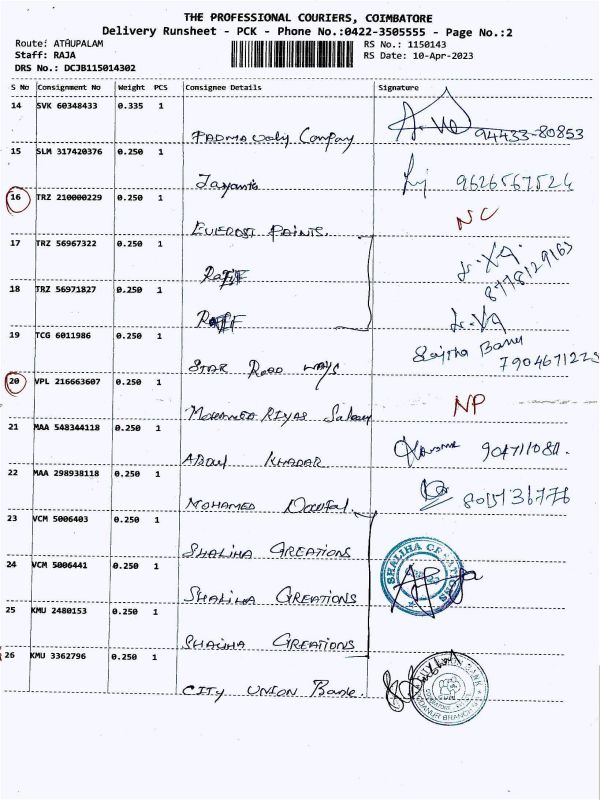 THE PROFESSIONAL COURIERS, COIMBATORE
Delivery Runsheet - PCK - Phone No.:0422-3505555 - Page No.:2
Route: ATHUPALAM
RS No.: 1150143
Staff: RAJA
RS Date: 10-Apr-2023
DRS No.: DCJB115014302
S No Consignment No Weight PCS Consignee Details Signature
14 SVK 60348433 0.335 1
94433-80853
15 SLM 317420376 0.250 1
Jayanti 9626567524
16 TRZ 210000229 0.250 1
NC
EVEREST PAINTS.
17 TRZ 56967322 0.250 1
8778129163
18 TRZ 56971827 0.250 1
19 TCG 6011986 0.250 1
Sajitha Banu
STAR ROAD WAYS
20 VPL 216663607 0.250 1
NP
MOHAMED RIYAS
21 MAA 548344118 0.250 1
ABDUL KHADAR
22 MAA 298938118 0.250 1
8015136776
MOHAMED
23 VCM 5006403 0.250 1
SHALIHA CREATIONS
24 VCM 5006441 0.250 1
SHALIHA CREATIONS
SHALIHA CREATIONS
25 KMU 2480153 0.250 1
SHALIHA CREATIONS
26 KMU 3362796 0.250 1
CITY UNION Bank.